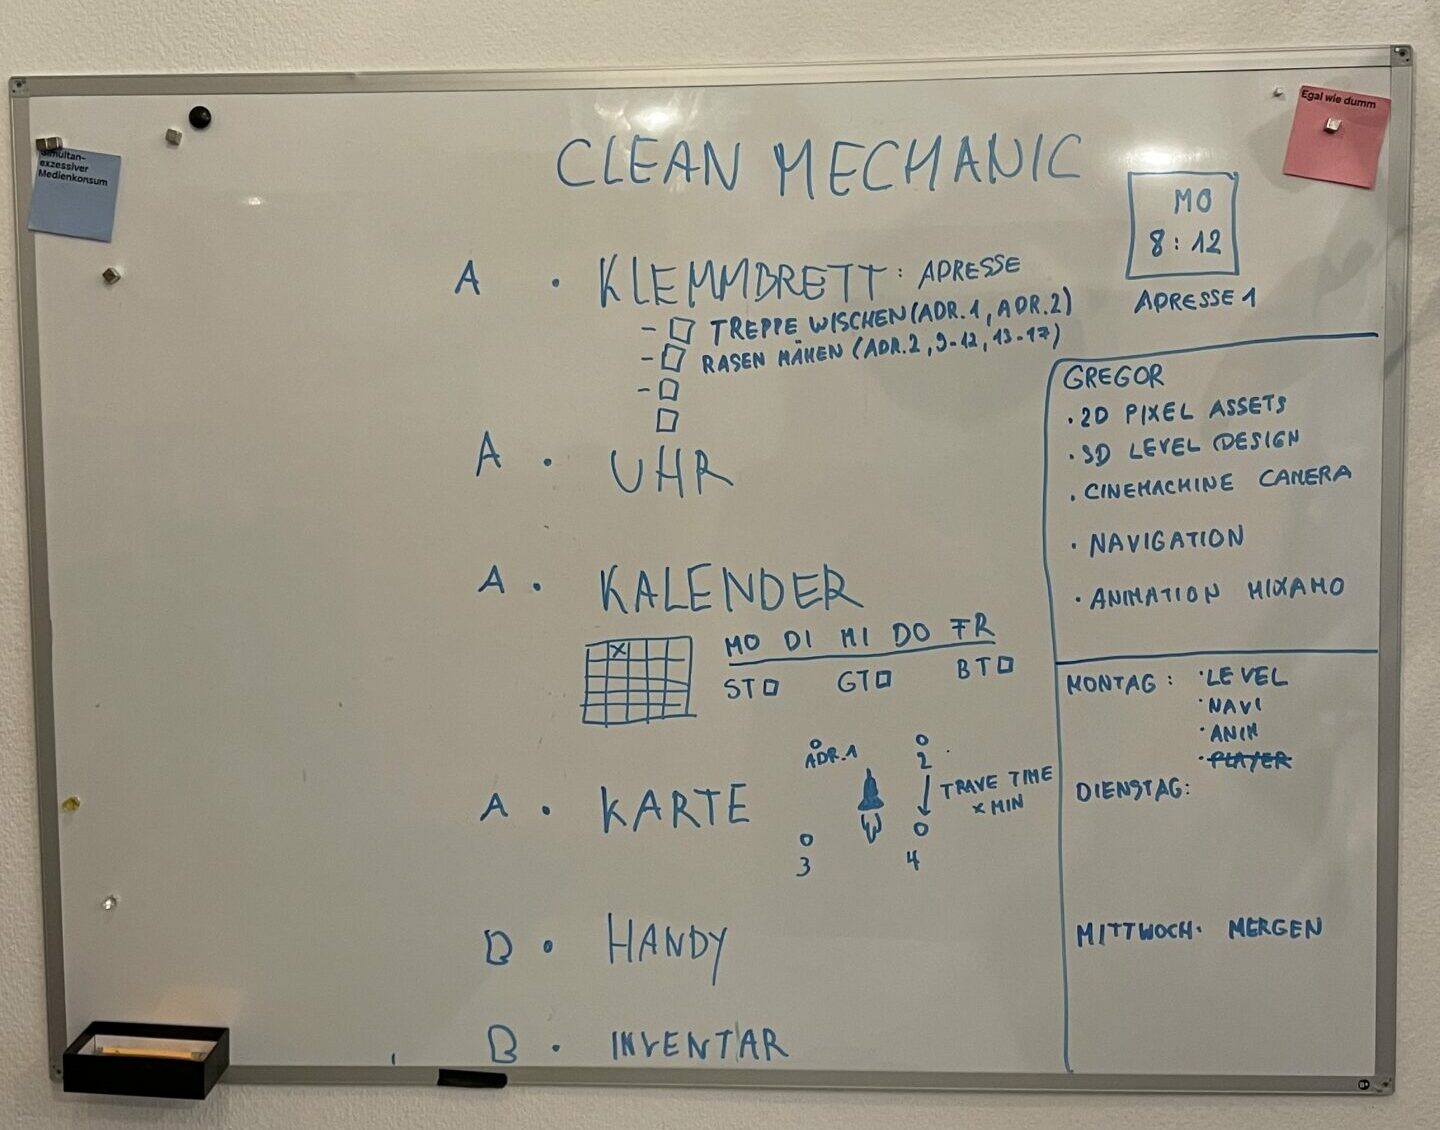 Simultan-
exzessiver
Medienkonsum
Egal wie dumm
CLEAN MECHANIC
MO
8:12
ADRESSE 1
A • KLEMMBRETT: ADRESSE
- TREPPE WISCHEN (ADR.1, ADR.2)
- RASEN MÄHEN (ADR.2, 9-12, 13-17)
-
A • UHR
A • KALENDER
X
MO DI MI DO FR
ST GT BT
A • KARTE
ADR.1
2
TRAVE TIME
X MIN
3
4
B • HANDY
B • INVENTAR
GREGOR
• 2D PIXEL ASSETS
• 3D LEVEL DESIGN
• CINEMACHINE CAMERA
• NAVIGATION
• ANIMATION MIXAMO
MONTAG: • LEVEL
• NAVI
• ANIM
• PLAYER
DIENSTAG:
MITTWOCH: MERGEN